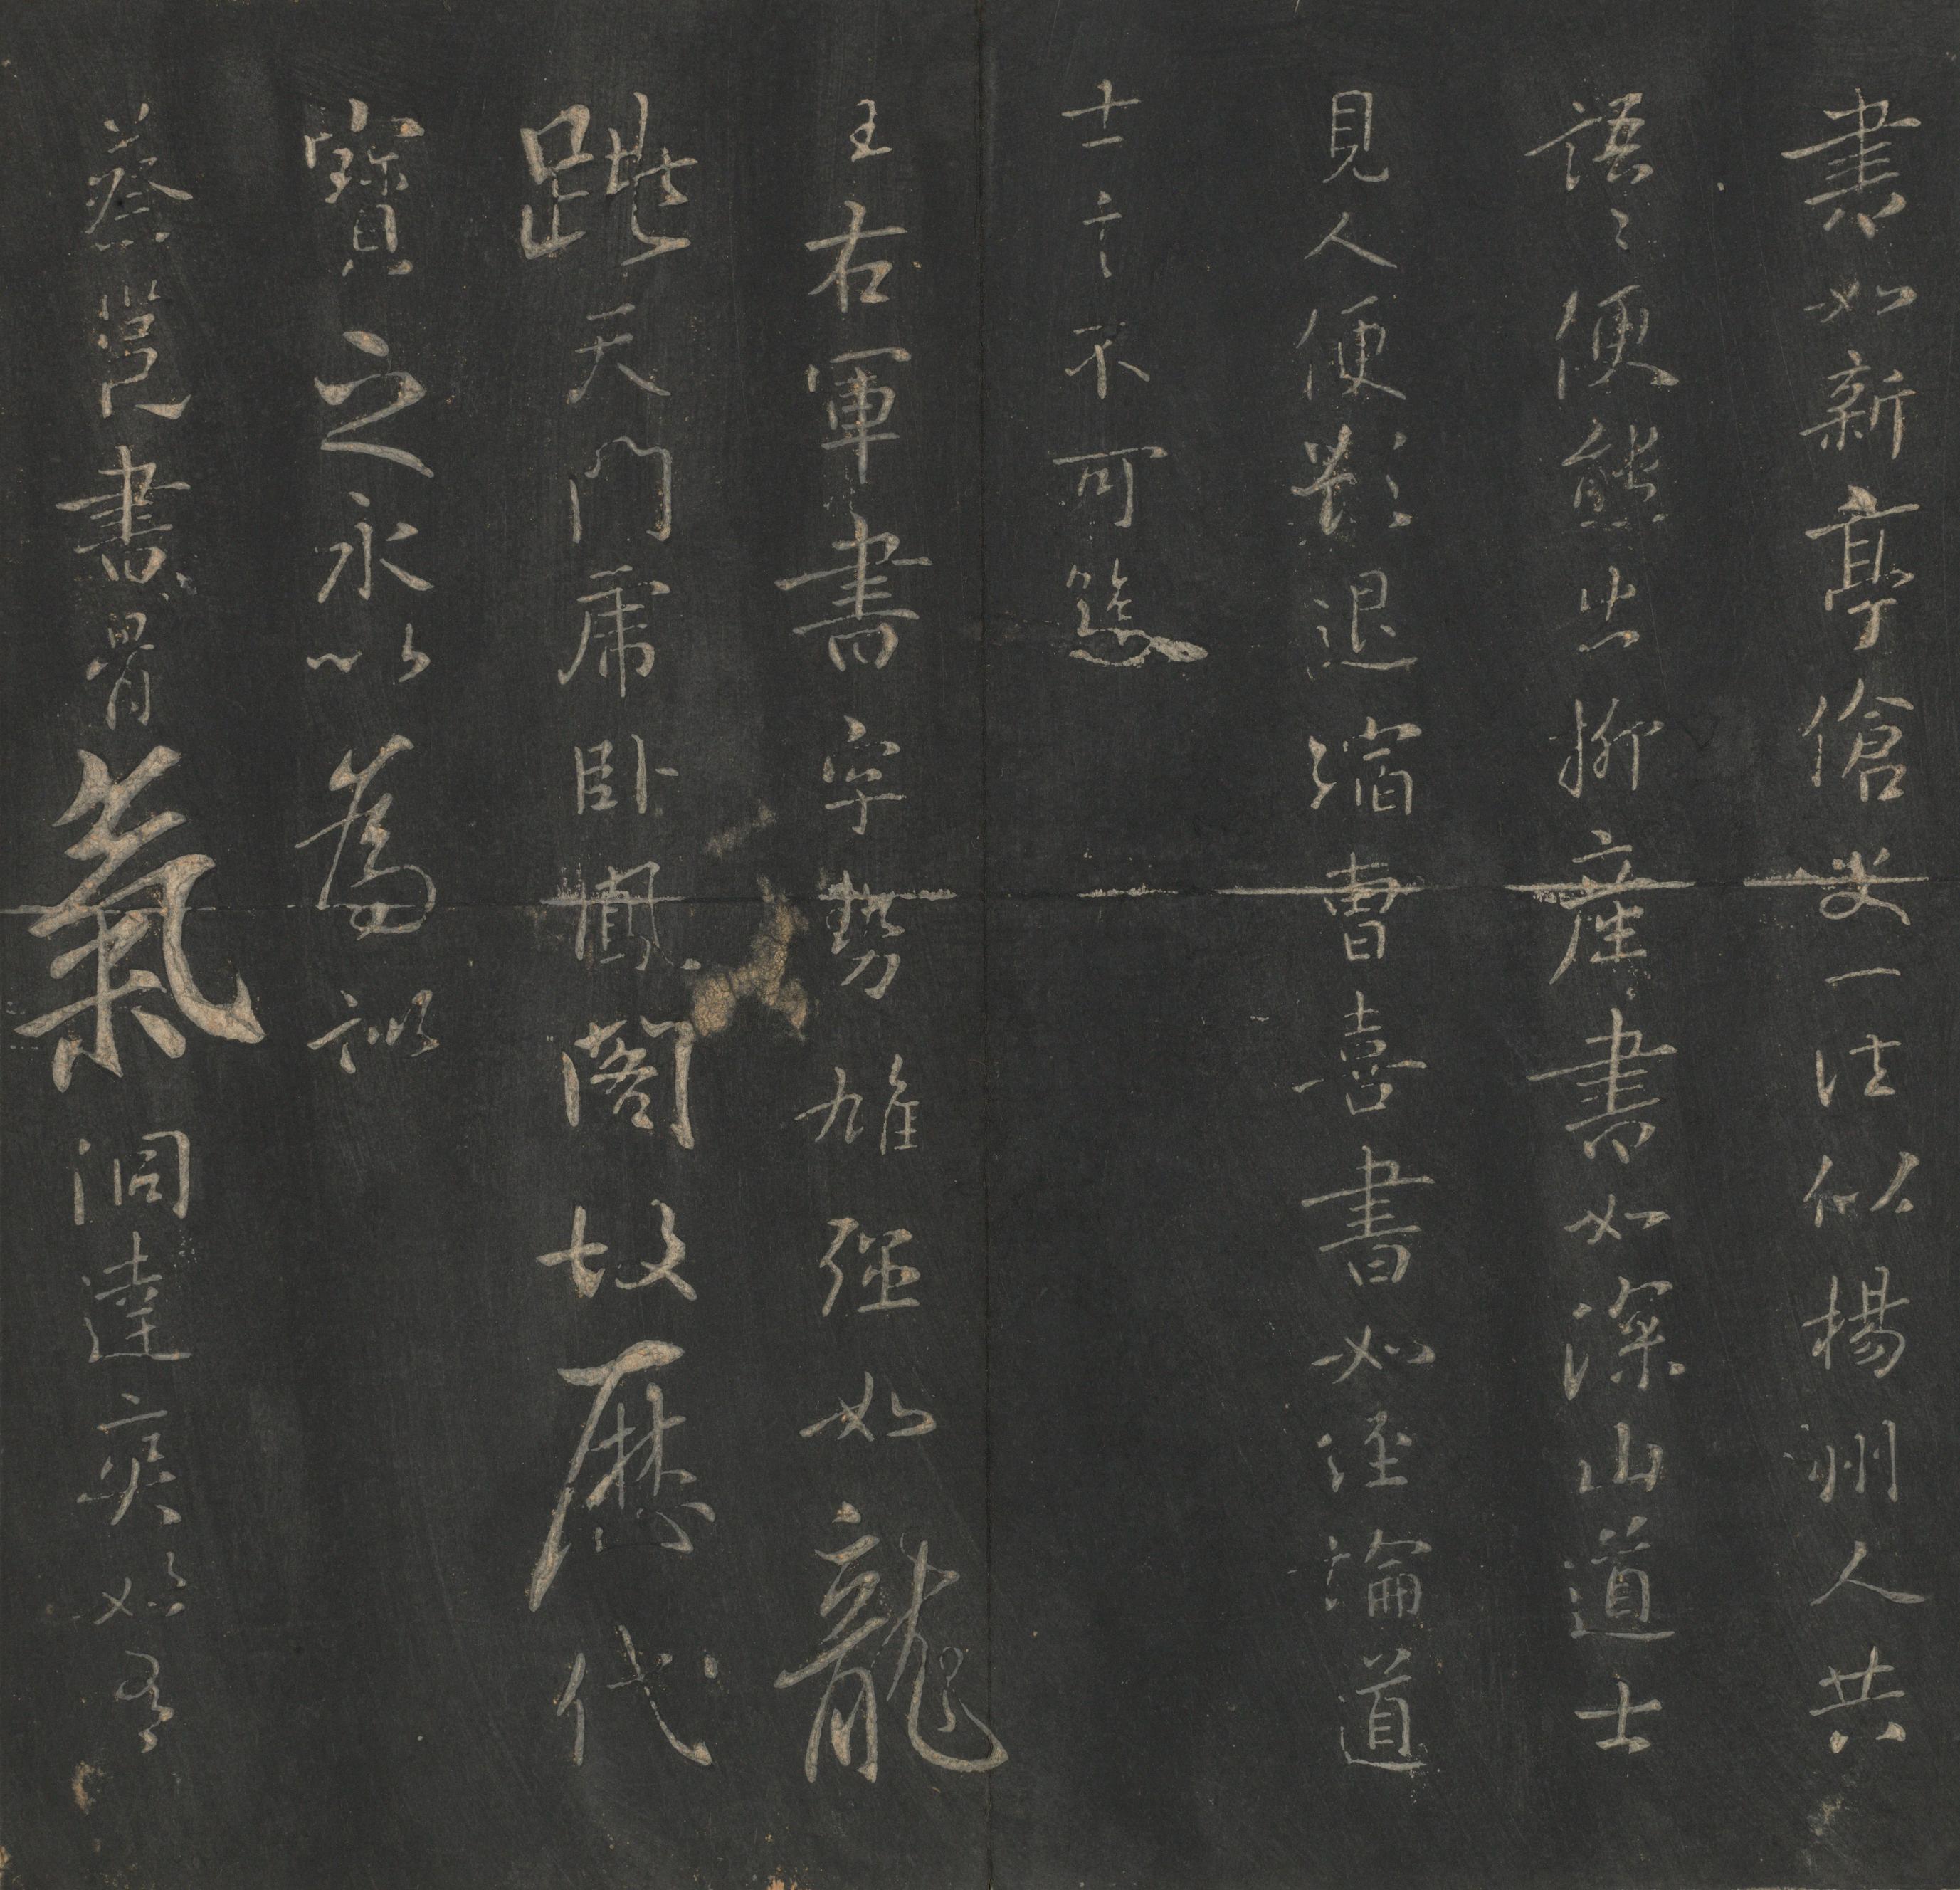 書如新亭傖父一往似楊州人共
語〻便態出柳産書如深山道士
見人便欲退縮曹喜書如經論道
士言不可絶
王右軍書字勢雄強如龍
跳天門虎臥鳳閣故歷代
寶之永以為訓
蔡邕書骨氣洞達爽爽有